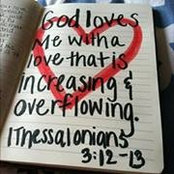 God loves
Me with a
love that is
increasing &
overflowing.
1Thessalonians
3:12-13